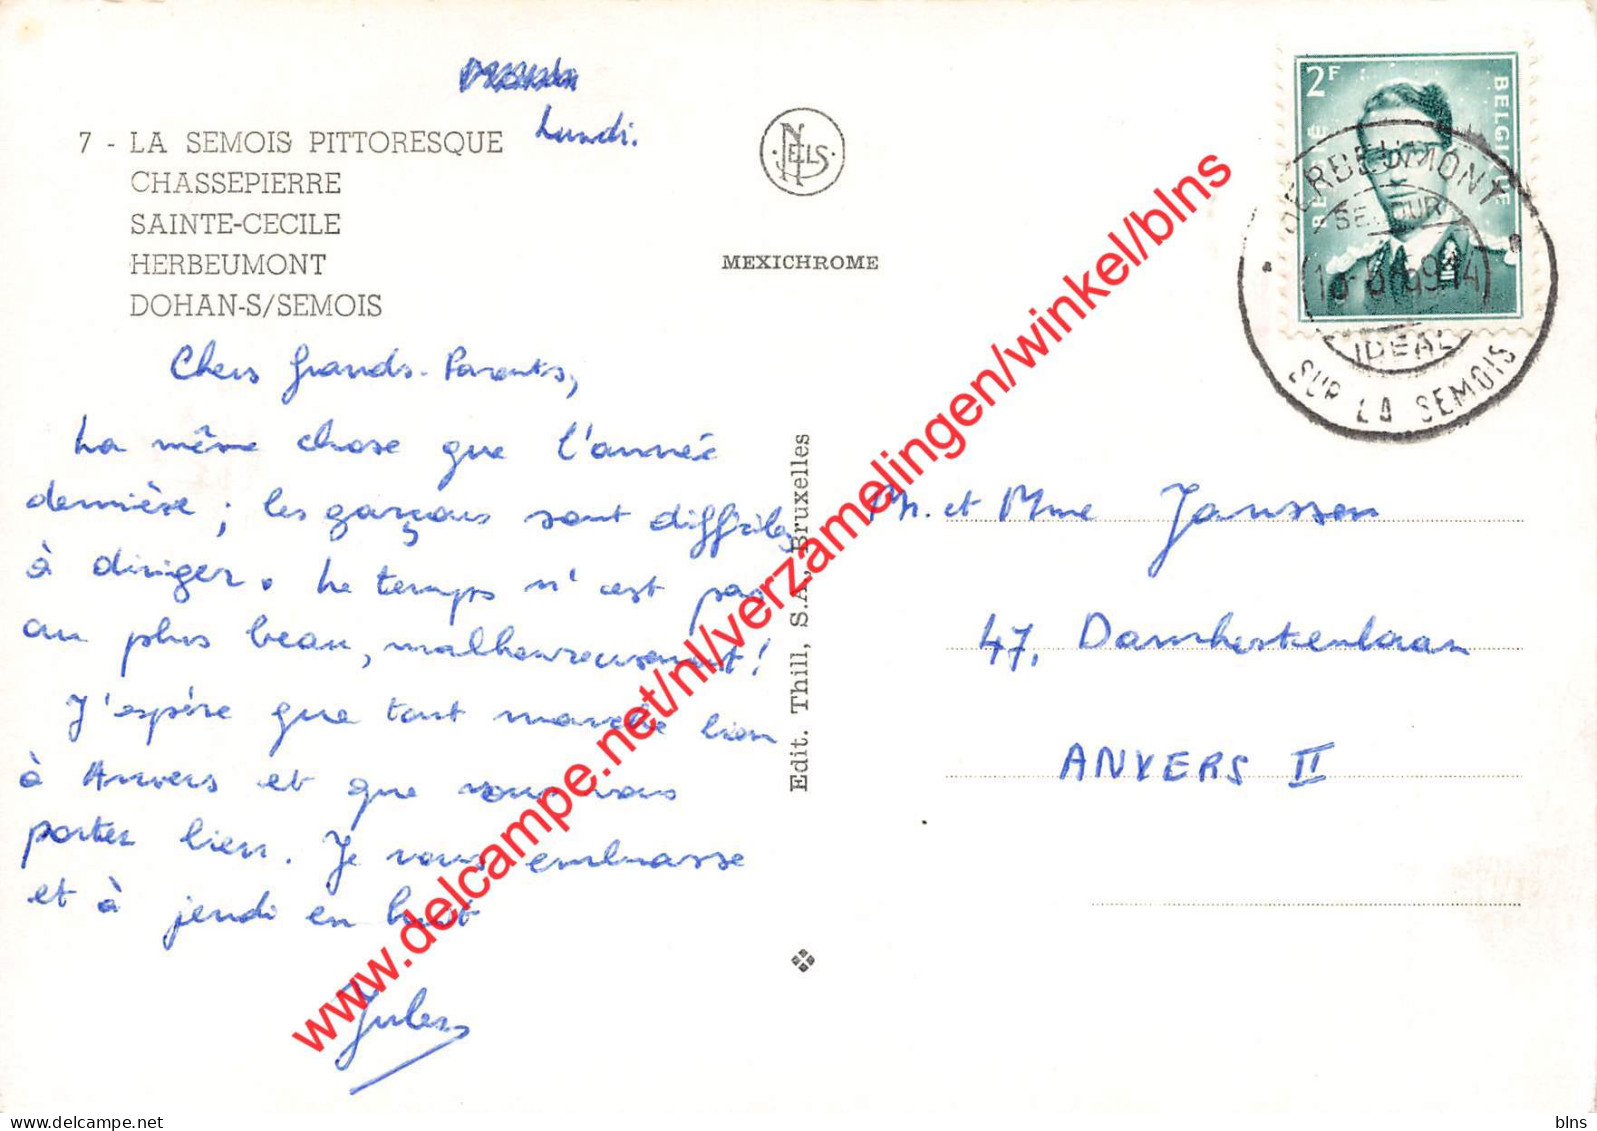 Lundi.
7 - LA SEMOIS PITTORESQUE
CHASSEPIERRE
SAINTE-CECILE
HERBEUMONT
DOHAN-S/SEMOIS
NELS
MEXICHROME
2F
BELGIË BELGIQUE
HERBEUMONT
SEJOUR
IDEAL
SUR LA SEMOIS
Chers Grands-Parents,
La même chose que l'année
dernière ; les garçons sont difficiles
à diriger. Le temps n'est pas
au plus beau, malheureusement !
J'espère que tout marche bien
à Anvers et que vous vous
portez bien. Je vous embrasse
et à jeudi en huit
Jules
Edit. Thill, S.A., Bruxelles
M. et Mme Janssen
47,
ANVERS II
www.delcampe.net/nl/verzamelingen/winkel/blns
delcampe.net
blns